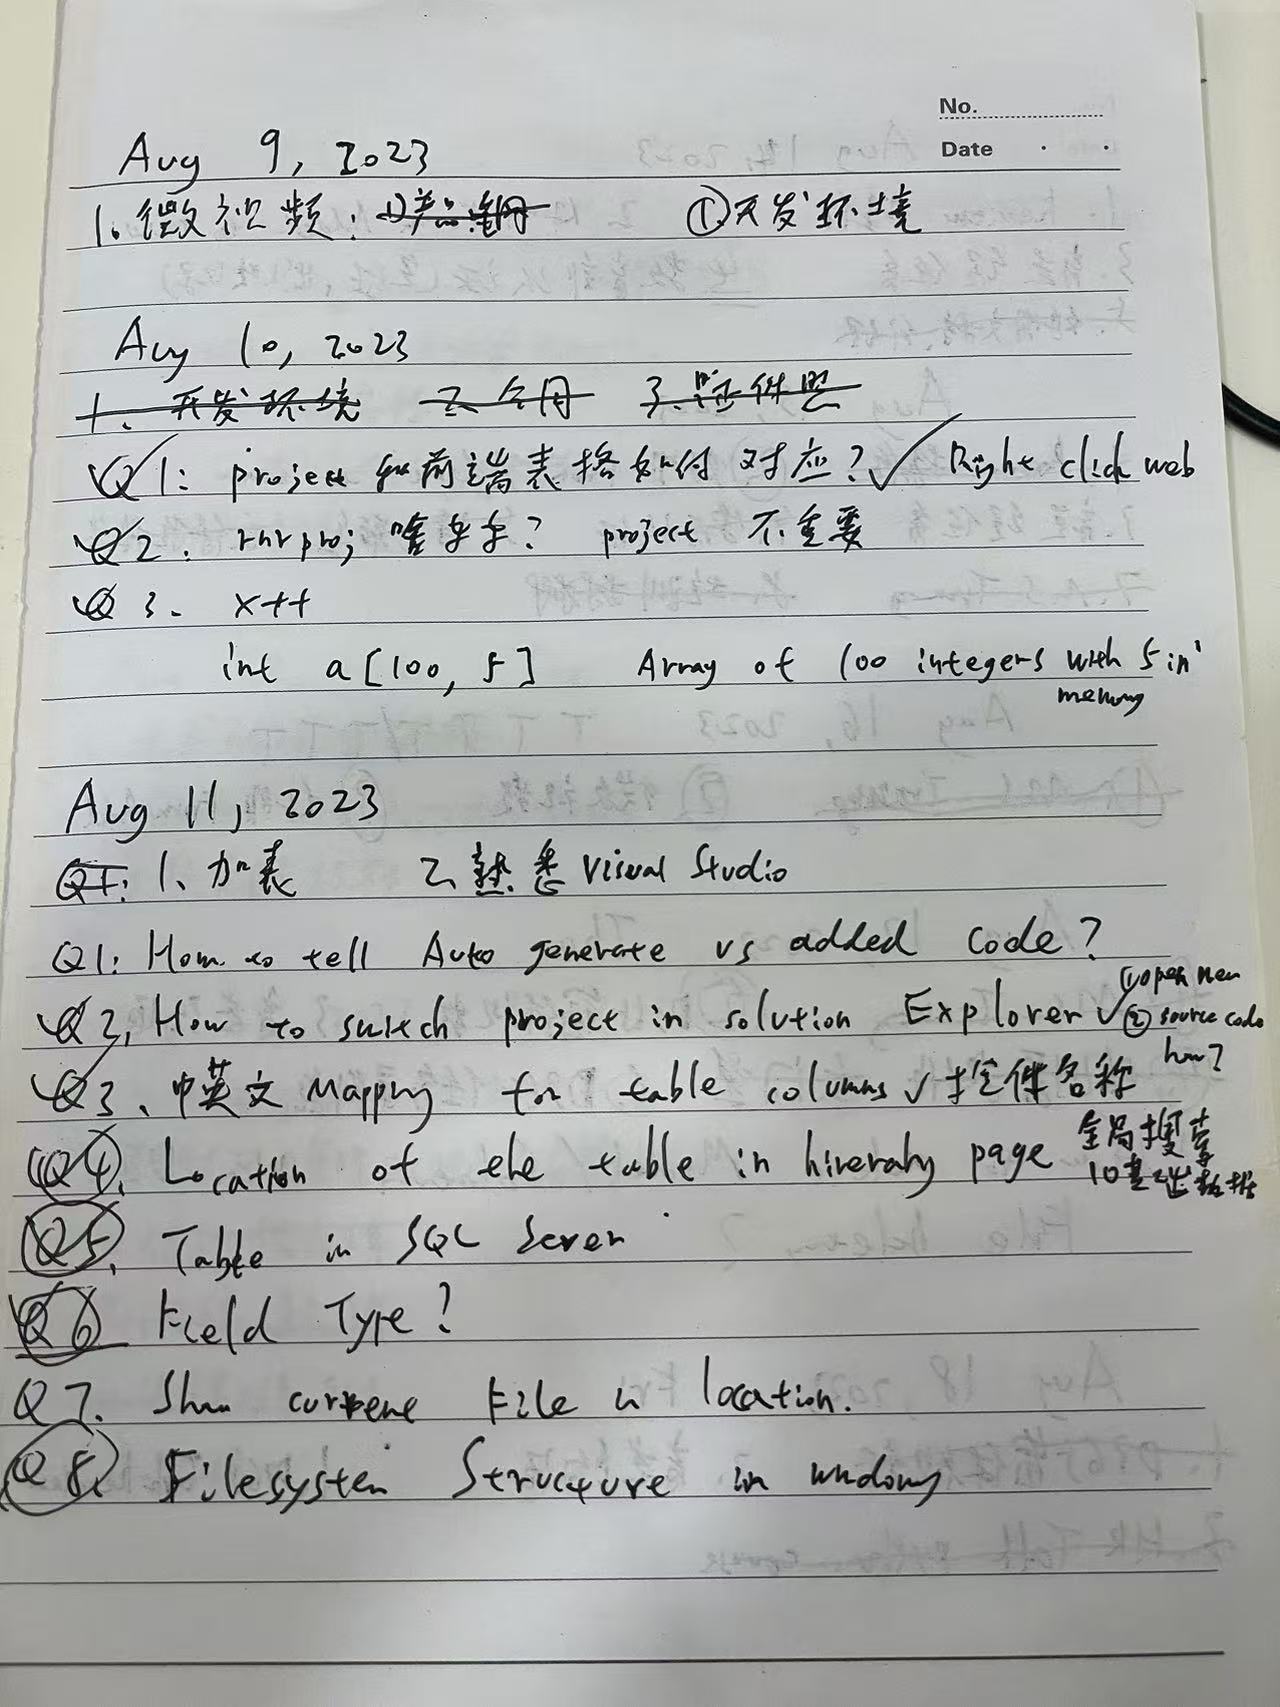 No.
Date
Aug 9, 2023
1. 微视频: ① ①开发环境
Aug 10, 2023
1. 开发环境 2. 3. 证件照
Q1: project 和前端表格如何对应? ✓ Right click web
Q2. rnrproj 啥东东? project 不重要
Q3. x++
int a[100, 5] Array of 100 integers with 5 in
memory
Aug 11, 2023
Q1: 1. 加表 2. 熟悉 Visual Studio
Q1: How to tell Auto generate vs added code?
Q2. How to switch project in solution Explorer ✓ ①open new
② source code
how?
Q3. 中英文 Mapping for table columns ✓ 控件名称
Q4. Location of the table in hirerahy page 全局搜索
10基础数据
Q5. Table in SQL Sever
Q6 Field Type?
Q7. Show current File in location.
Q8. Filesystem Structure in windows